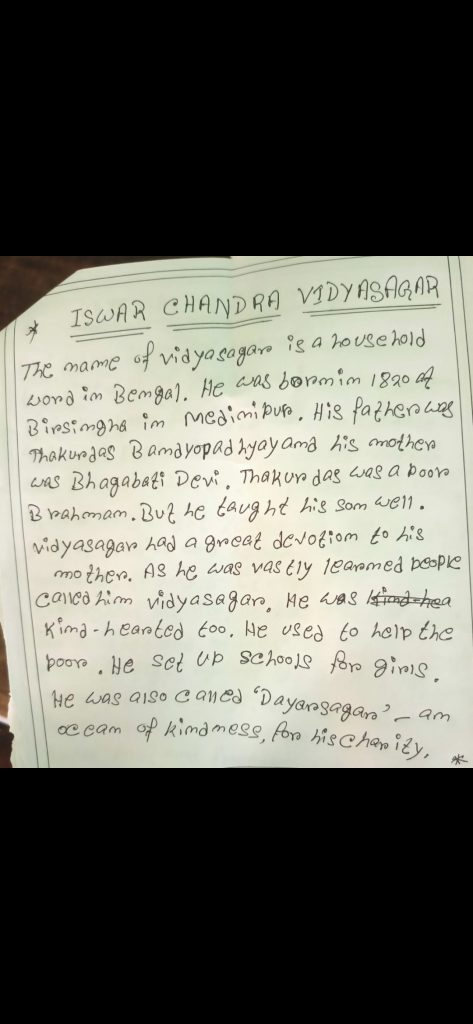 * ISWAR CHANDRA VIDYASAGAR
The name of vidyasagar is a household
word in Bengal. He was born in 1820 at
Birsingha in Medinipur. His father was
Thakurdas Bandyopadhyay and his mother
was Bhagabati Devi. Thakurdas was a poor
Brahman. But he taught his son well.
vidyasagar had a great devotion to his
mother. As he was vastly learned people
called him vidyasagar. He was kind-hea
Kind-hearted too. He used to help the
poor. He set up schools for girls.
He was also called 'Dayarsagar' - an
ocean of kindness, for his charity. *